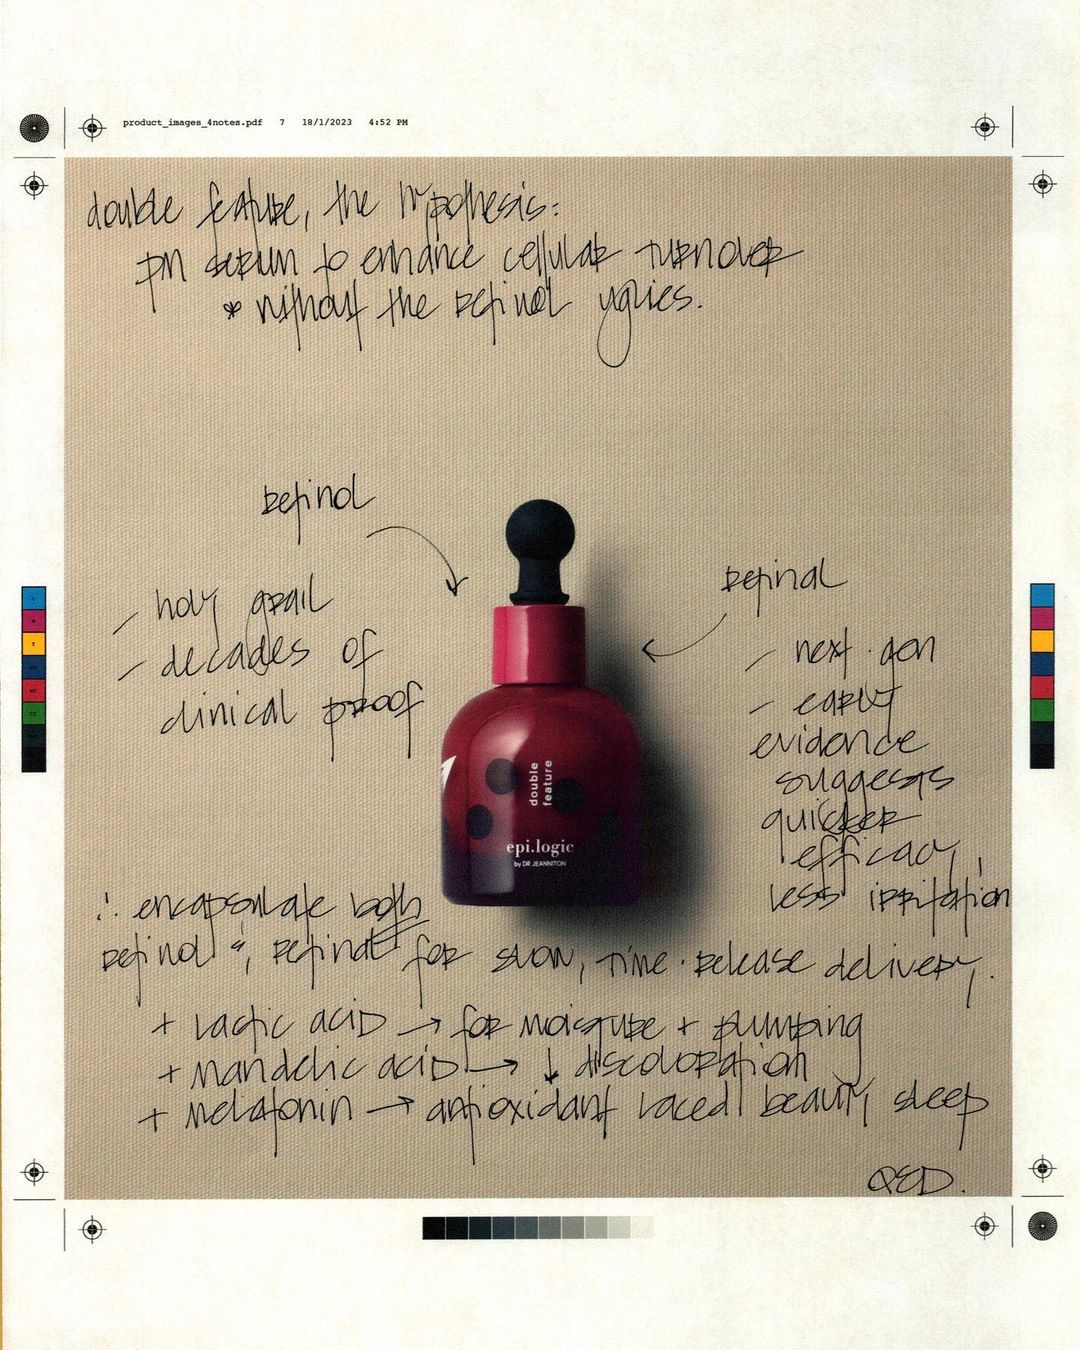 product_images_4notes.pdf 7 18/1/2023 4:52 PM
double feature, the hypothesis:
PM serum to enhance cellular turnover
* without the retinol uglies.
retinol
- holy grail
- decades of
clinical proof
retinal
- next-gen
- early
evidence
suggests
quicker
efficacy,
less irritation
double
feature
epi.logic
by DR JEANNITON
∴ encapsulate both
retinol & retinal for slow, time-release delivery.
+ lactic acid → for moisture + plumping
+ mandelic acid → ↓ discoloration
+ melatonin → antioxidant laced beauty sleep
QED.